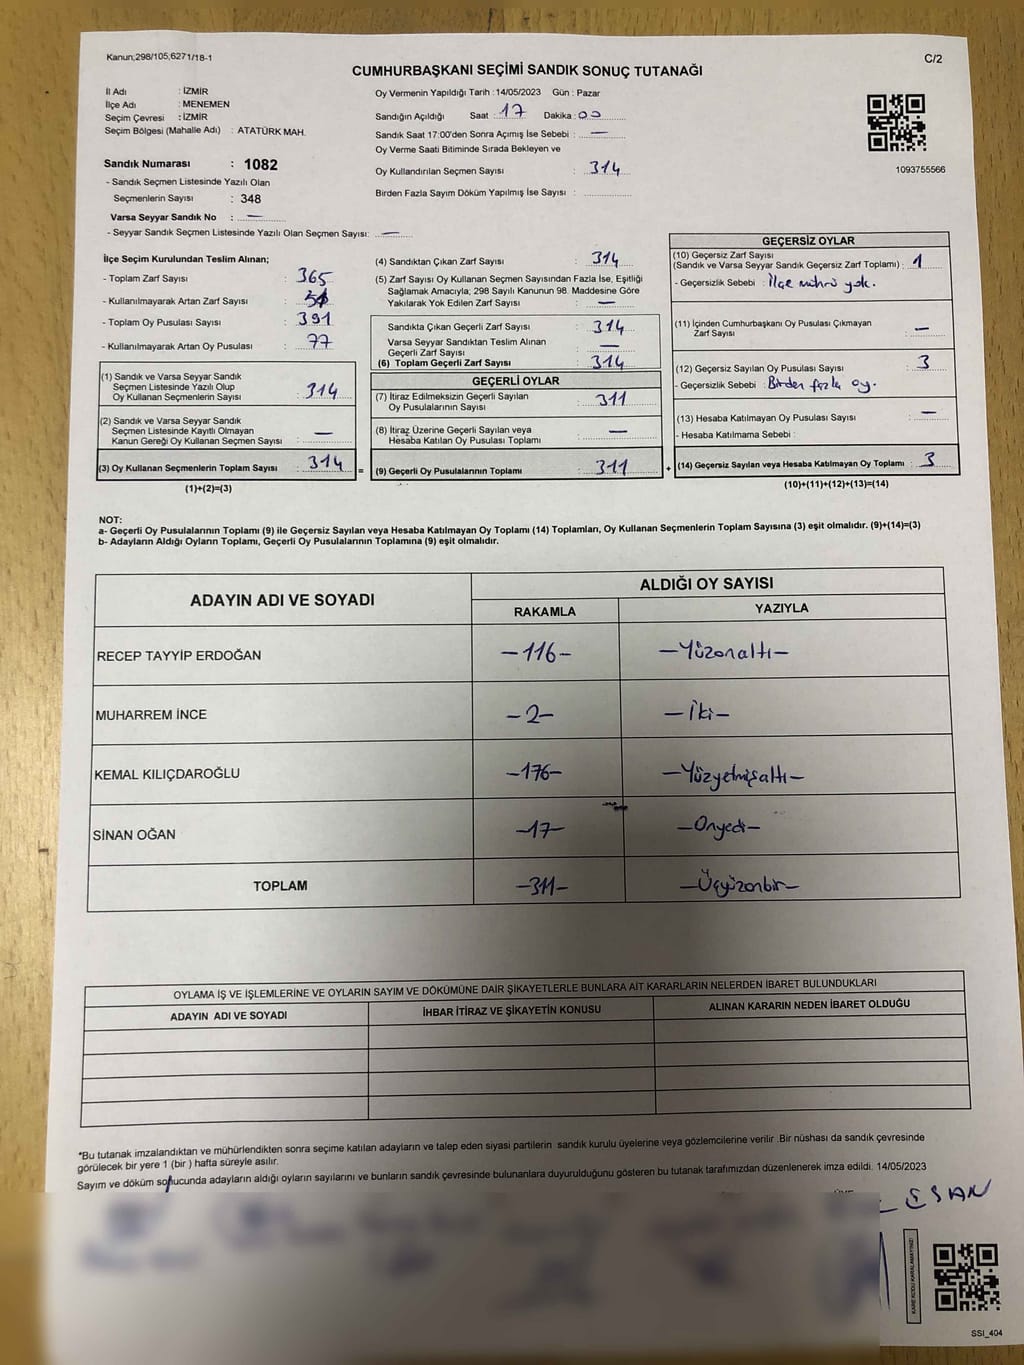 Kanun;298/105,6271/18-1
C/2
CUMHURBAŞKANI SEÇİMİ SANDIK SONUÇ TUTANAĞI
İl Adı : İZMİR
İlçe Adı : MENEMEN
Seçim Çevresi : İZMİR
Seçim Bölgesi (Mahalle Adı) : ATATÜRK MAH.
Sandık Numarası : 1082
- Sandık Seçmen Listesinde Yazılı Olan
Seçmenlerin Sayısı : 348
Varsa Seyyar Sandık No : —
- Seyyar Sandık Seçmen Listesinde Yazılı Olan Seçmen Sayısı: —
Oy Vermenin Yapıldığı Tarih : 14/05/2023 Gün : Pazar
Sandığın Açıldığı Saat : 17 Dakika : 00
Sandık Saat 17:00'den Sonra Açımış İse Sebebi : —
Oy Verme Saati Bitiminde Sırada Bekleyen ve
Oy Kullandırılan Seçmen Sayısı : 314
Birden Fazla Sayım Döküm Yapılmış İse Sayısı :
1093755566
İlçe Seçim Kurulundan Teslim Alınan;
- Toplam Zarf Sayısı : 365
- Kullanılmayarak Artan Zarf Sayısı :
- Toplam Oy Pusulası Sayısı : 391
- Kullanılmayarak Artan Oy Pusulası : 77
(1) Sandık ve Varsa Seyyar Sandık
Seçmen Listesinde Yazılı Olup
Oy Kullanan Seçmenlerin Sayısı : 314
(2) Sandık ve Varsa Seyyar Sandık
Seçmen Listesinde Kayıtlı Olmayan
Kanun Gereği Oy Kullanan Seçmen Sayısı : —
(3) Oy Kullanan Seçmenlerin Toplam Sayısı : 314 =
(1)+(2)=(3)
(4) Sandıktan Çıkan Zarf Sayısı : 314
(5) Zarf Sayısı Oy Kullanan Seçmen Sayısından Fazla İse, Eşitliği
Sağlamak Amacıyla; 298 Sayılı Kanunun 98. Maddesine Göre
Yakılarak Yok Edilen Zarf Sayısı : —
Sandıkta Çıkan Geçerli Zarf Sayısı : 314
Varsa Seyyar Sandıktan Teslim Alınan
Geçerli Zarf Sayısı : —
(6) Toplam Geçerli Zarf Sayısı : 314
GEÇERLİ OYLAR
(7) İtiraz Edilmeksizin Geçerli Sayılan
Oy Pusulalarının Sayısı : 311
(8) İtiraz Üzerine Geçerli Sayılan veya
Hesaba Katılan Oy Pusulası Toplamı : —
(9) Geçerli Oy Pusulalarının Toplamı : 311 +
GEÇERSİZ OYLAR
(10) Geçersiz Zarf Sayısı
(Sandık ve Varsa Seyyar Sandık Geçersiz Zarf Toplamı) : 1
- Geçersizlik Sebebi : İlçe mührü yok.
(11) İçinden Cumhurbaşkanı Oy Pusulası Çıkmayan
Zarf Sayısı : —
(12) Geçersiz Sayılan Oy Pusulası Sayısı : 3
- Geçersizlik Sebebi : Birden fazla oy.
(13) Hesaba Katılmayan Oy Pusulası Sayısı : —
- Hesaba Katılmama Sebebi :
(14) Geçersiz Sayılan veya Hesaba Katılmayan Oy Toplamı : 3
(10)+(11)+(12)+(13)=(14)
NOT:
a- Geçerli Oy Pusulalarının Toplamı (9) ile Geçersiz Sayılan veya Hesaba Katılmayan Oy Toplamı (14) Toplamları, Oy Kullanan Seçmenlerin Toplam Sayısına (3) eşit olmalıdır. (9)+(14)=(3)
b- Adayların Aldığı Oyların Toplamı, Geçerli Oy Pusulalarının Toplamına (9) eşit olmalıdır.
ADAYIN ADI VE SOYADI ALDIĞI OY SAYISI
RAKAMLA YAZIYLA
RECEP TAYYİP ERDOĞAN —116— —Yüzonaltı—
MUHARREM İNCE —2— —İki—
KEMAL KILIÇDAROĞLU —176— —Yüzyetmişaltı—
SİNAN OĞAN —17— —Onyedi—
TOPLAM —311— —Üçyüzonbir—
OYLAMA İŞ VE İŞLEMLERİNE VE OYLARIN SAYIM VE DÖKÜMÜNE DAİR ŞİKAYETLERLE BUNLARA AİT KARARLARIN NELERDEN İBARET BULUNDUKLARI
ADAYIN ADI VE SOYADI İHBAR İTİRAZ VE ŞİKAYETİN KONUSU ALINAN KARARIN NEDEN İBARET OLDUĞU
*Bu tutanak imzalandıktan ve mühürlendikten sonra seçime katılan adayların ve talep eden siyasi partilerin sandık kurulu üyelerine veya gözlemcilerine verilir .Bir nüshası da sandık çevresinde
görülecek bir yere 1 (bir ) hafta süreyle asılır.
Sayım ve döküm sonucunda adayların aldığı oyların sayılarını ve bunların sandık çevresinde bulunanlara duyurulduğunu gösteren bu tutanak tarafımızdan düzenlenerek imza edildi. 14/05/2023
ESAN
KARE KODU KARALAMAYINIZ!
SSI_404